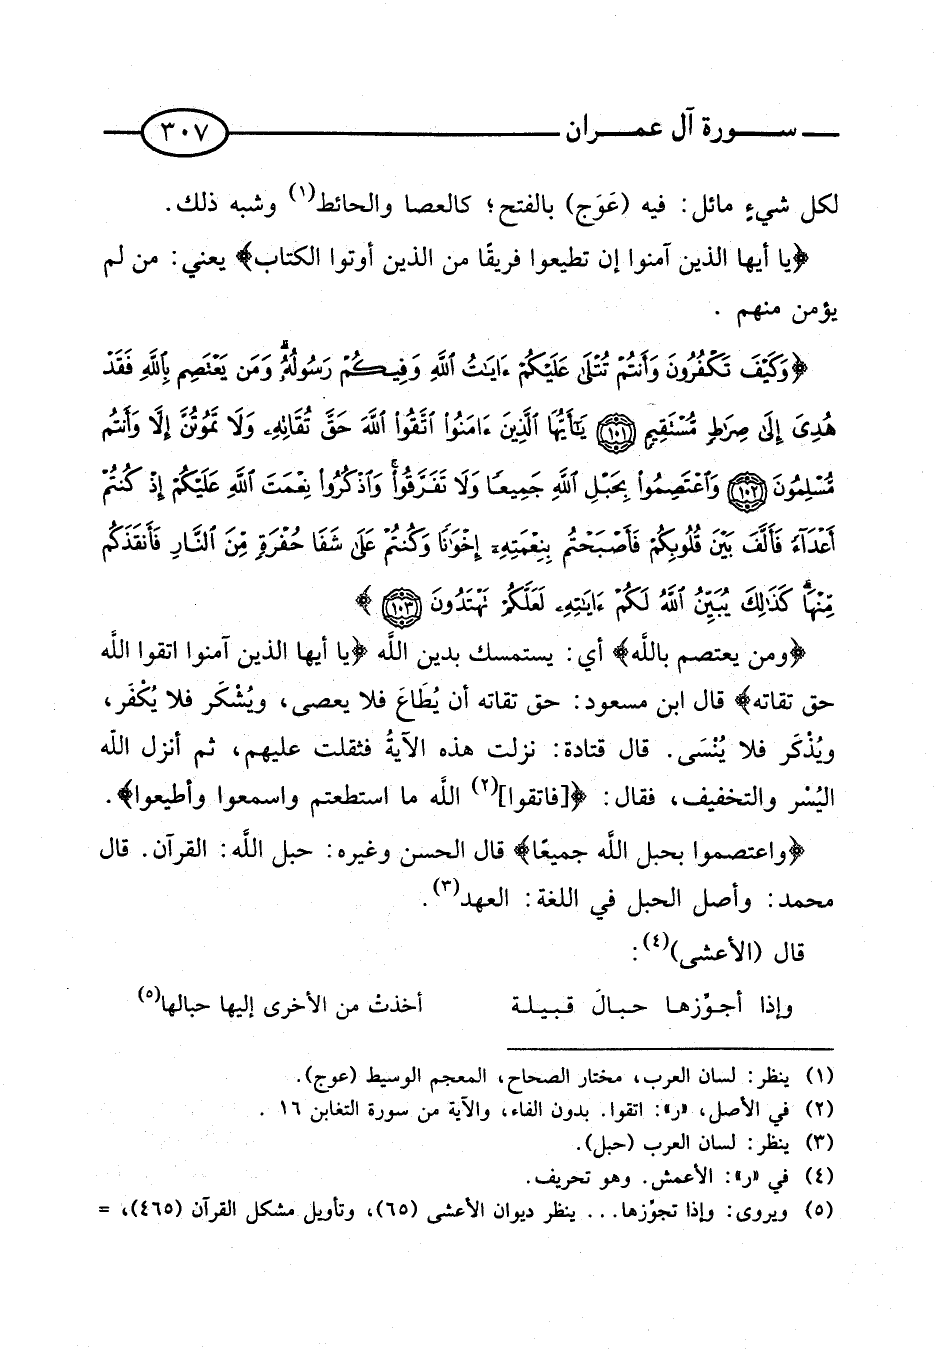 سورة آل عمران ٣٠٧
لكل شيءٍ مائل: فيه (عَوَج) بالفتح؛ كالعصا والحائط(١) وشبه ذلك.
﴿يا أيها الذين آمنوا إن تطيعوا فريقًا من الذين أوتوا الكتاب﴾ يعني: من لم
يؤمن منهم .
﴿وَكَيْفَ تَكْفُرُونَ وَأَنتُمْ تُتْلَىٰ عَلَيْكُمْ ءَايَٰتُ ٱللَّهِ وَفِيكُمْ رَسُولُهُۥۗ وَمَن يَعْتَصِم بِٱللَّهِ فَقَدْ
هُدِىَ إِلَىٰ صِرَٰطٍ مُّسْتَقِيمٍ ﴿١٠١﴾ يَٰٓأَيُّهَا ٱلَّذِينَ ءَامَنُوا۟ ٱتَّقُوا۟ ٱللَّهَ حَقَّ تُقَاتِهِۦ وَلَا تَمُوتُنَّ إِلَّا وَأَنتُم
مُّسْلِمُونَ ﴿١٠٢﴾ وَٱعْتَصِمُوا۟ بِحَبْلِ ٱللَّهِ جَمِيعًا وَلَا تَفَرَّقُوا۟ۚ وَٱذْكُرُوا۟ نِعْمَتَ ٱللَّهِ عَلَيْكُمْ إِذْ كُنتُمْ
أَعْدَآءً فَأَلَّفَ بَيْنَ قُلُوبِكُمْ فَأَصْبَحْتُم بِنِعْمَتِهِۦٓ إِخْوَٰنًا وَكُنتُمْ عَلَىٰ شَفَا حُفْرَةٍ مِّنَ ٱلنَّارِ فَأَنقَذَكُم
مِّنْهَاۗ كَذَٰلِكَ يُبَيِّنُ ٱللَّهُ لَكُمْ ءَايَٰتِهِۦ لَعَلَّكُمْ تَهْتَدُونَ ﴿١٠٣﴾ ﴾
﴿ومن يعتصم بالله﴾ أي: يستمسك بدين اللَّه ﴿يا أيها الذين آمنوا اتقوا اللَّه
حق تقاته﴾ قال ابن مسعود: حق تقاته أن يُطَاعَ فلا يعصى، ويُشْكَر فلا يُكْفَر،
ويُذْكَر فلا يُنْسَى. قال قتادة: نزلت هذه الآيةُ فثقلت عليهم، ثم أنزل اللَّه
اليُسْر والتخفيف، فقال: ﴿[فاتقوا](٢) اللَّه ما استطعتم واسمعوا وأطيعوا﴾.
﴿واعتصموا بحبل اللَّه جميعًا﴾ قال الحسن وغيره: حبل اللَّه: القرآن. قال
محمد: وأصل الحبل في اللغة: العهد(٣).
قال (الأعشى)(٤):
وإذا أجوِّزها حبالَ قبيلة أخذتْ من الأخرى إليها حبالها(٥)
(١) ينظر: لسان العرب، مختار الصحاح، المعجم الوسيط (عوج).
(٢) في الأصل، «ر»: اتقوا. بدون الفاء، والآية من سورة التغابن ١٦ .
(٣) ينظر: لسان العرب (حبل).
(٤) في «ر»: الأعمش. وهو تحريف.
(٥) ويروى: وإذا تجوِّزها... ينظر ديوان الأعشى (٦٥)، وتأويل مشكل القرآن (٤٦٥)، =